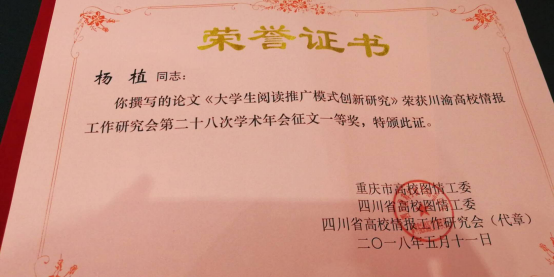 荣誉证书
杨 植 同志:
你撰写的论文《大学生阅读推广模式创新研究》荣获川渝高校情报
工作研究会第二十八次学术年会征文一等奖,特颁此证。
重庆市高校图情工委
四川省高校图情工委
四川省高校情报工作研究会(代章)
二〇一八年五月十一日